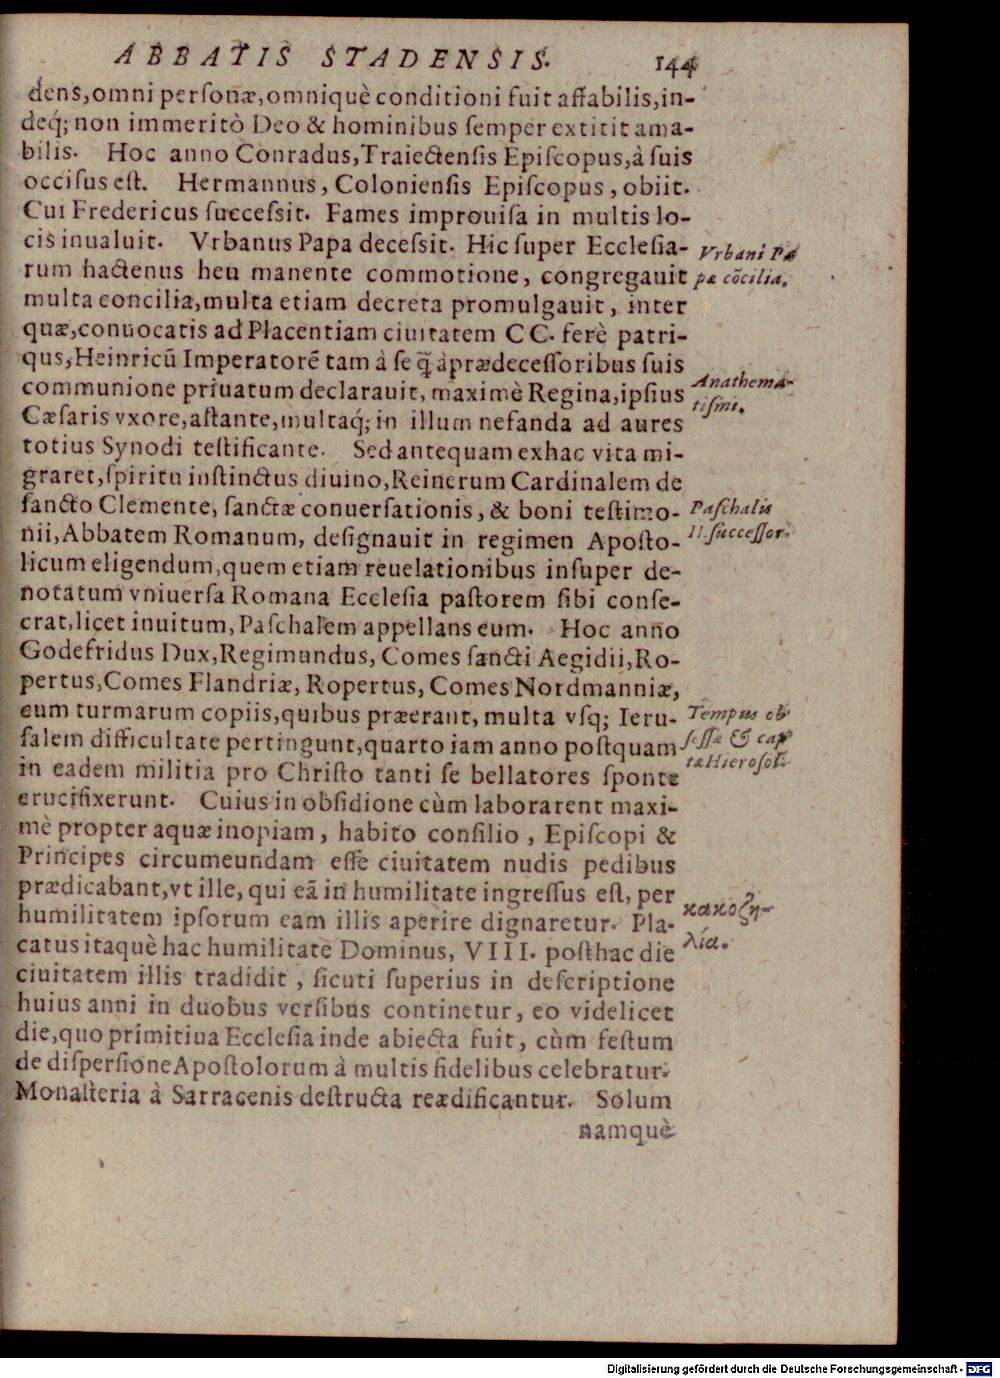 ABBATIS STADENSIS. 144
dens,omni perſonæ,omniquè conditioni fuit affabilis,in-
deq́; non immeritò Deo & hominibus ſemper extitit ama-
bilis. Hoc anno Conradus,Traiectenſis Epiſcopus,à ſuis
occiſus eſt. Hermannus, Colonienſis Epiſcopus, obiit.
Cui Fredericus ſucceſsit. Fames improuiſa in multis lo-
cis inualuit. Vrbanus Papa deceſsit. Hic ſuper Eccleſia-
rum hactenus heu manente commotione, congregauit
multa concilia,multa etiam decreta promulgauit, inter
quæ,conuocatis ad Placentiam ciuitatem CC. ferè patri-
qus,Heinricũ Imperatorẽ tam à ſe q̃ à prædeceſſoribus ſuis
communione priuatum declarauit, maximè Regina,ipſius
Cæſaris vxore,aſtante,multaq́; in illum nefanda ad aures
totius Synodi teſtificante. Sed antequam ex hac vita mi-
graret,ſpiritu inſtinctus diuino,Reinerum Cardinalem de
ſancto Clemente, ſanctæ conuerſationis, & boni teſtimo-
nii,Abbatem Romanum, deſignauit in regimen Apoſto-
licum eligendum,quem etiam reuelationibus inſuper de-
notatum vniuerſa Romana Eccleſia paſtorem ſibi conſe-
crat,licet inuitum,Paſchalem appellans eum. Hoc anno
Godefridus Dux,Regimundus, Comes ſancti Aegidii,Ro-
pertus,Comes Flandriæ, Ropertus, Comes Nordmanniæ,
cum turmarum copiis,quibus præerant, multa vſq; Ieru-
ſalem difficultate pertingunt,quarto iam anno poſtquam
in eadem militia pro Chriſto tanti ſe bellatores ſponte
crucifixerunt. Cuius in obſidione cùm laborarent maxi-
mè propter aquæ inopiam, habito conſilio, Epiſcopi &
Principes circumeundam eſſe ciuitatem nudis pedibus
prædicabant,vt ille, qui eã in humilitate ingreſſus eſt, per
humilitatem ipſorum eam illis aperire dignaretur. Pla-
catus itaquè hac humilitate Dominus, VIII. poſthac die
ciuitatem illis tradidit, ſicuti ſuperius in deſcriptione
huius anni in duobus verſibus continetur, eo videlicet
die,quo primitiua Eccleſia inde abiecta fuit, cùm feſtum
de diſperſione Apoſtolorum à multis fidelibus celebratur.
Monaſteria à Sarracenis deſtructa reædificantur. Solum
namquè
Vrbani Pa
pæ cõcilia.
Anathema-
tiſmi.
Paſchalis
II.ſucceſſor.
Tempus ob
ſeſſæ & cap
tæ Hieroſol.
κακοζη-
λία.
Digitalisierung gefördert durch die Deutsche Forschungsgemeinschaft - DFG